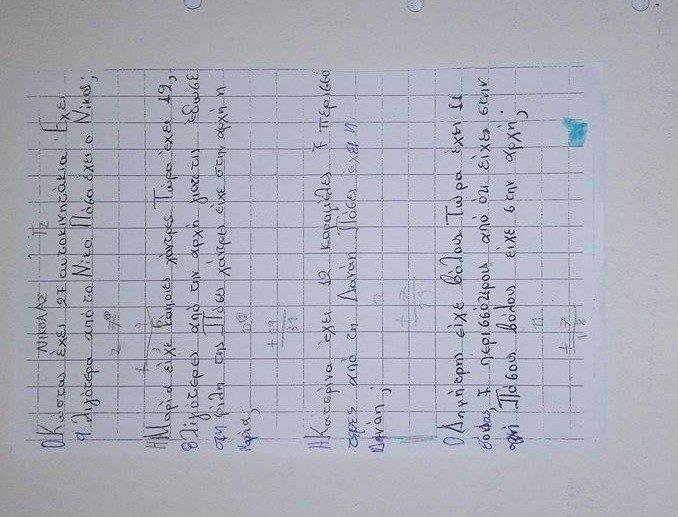 ΝΙΚΟΛΑΣ Π2
Ο Κώστας έχει 27 αυτοκινητάκια. Έχει
9 λιγότερα από το Νίκο. Πόσα έχει ο Νίκος;
2
+ 9
Η Μαρία είχε κάποιες χάντρες. Τώρα έχει 12,
8 λιγότερες από την αρχή γιατί τις έδωσε
στη φίλη της. Πόσες χάντρες είχε στην αρχή η
Μαρία;
+
31
Η Κατερίνα έχει 12 καραμέλες 7 περισσό
τερες από τη Δανάη. Πόσες έχει η
Δανάη;
12
+ 7
19
Ο Δημήτρης είχε βόλους. Τώρα έχει 11
βόλους, 7 περισσότερους από ότι είχε στην
αρχή. Πόσους βόλους είχε στην αρχή;
11
+ 7
18